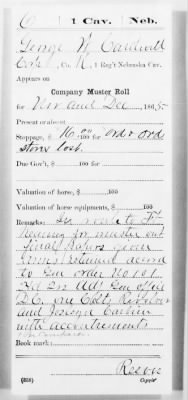 6 1 Cav. Neb.
George W Caldwell
Co. K, 1 Reg't Nebraska Cav.
Appears on
Company Muster Roll
for Nov and Dec, 1865
Present or absent
Stoppage, $ 16.00/100 for Ord & Ord
stores lost.
Due Gov't, $ 100 for
Valuation of horse, $ 100
Valuation of horse equipments, $ 100
Remarks: In route to Ft
Kearney for muster out
final papers given
arms retained accord
to Gen order No 101
Adj Gen office
D.C. one Colts Revolver
and Joseph Carbine
with accoutrements
Book mark:
(858) Copyist.